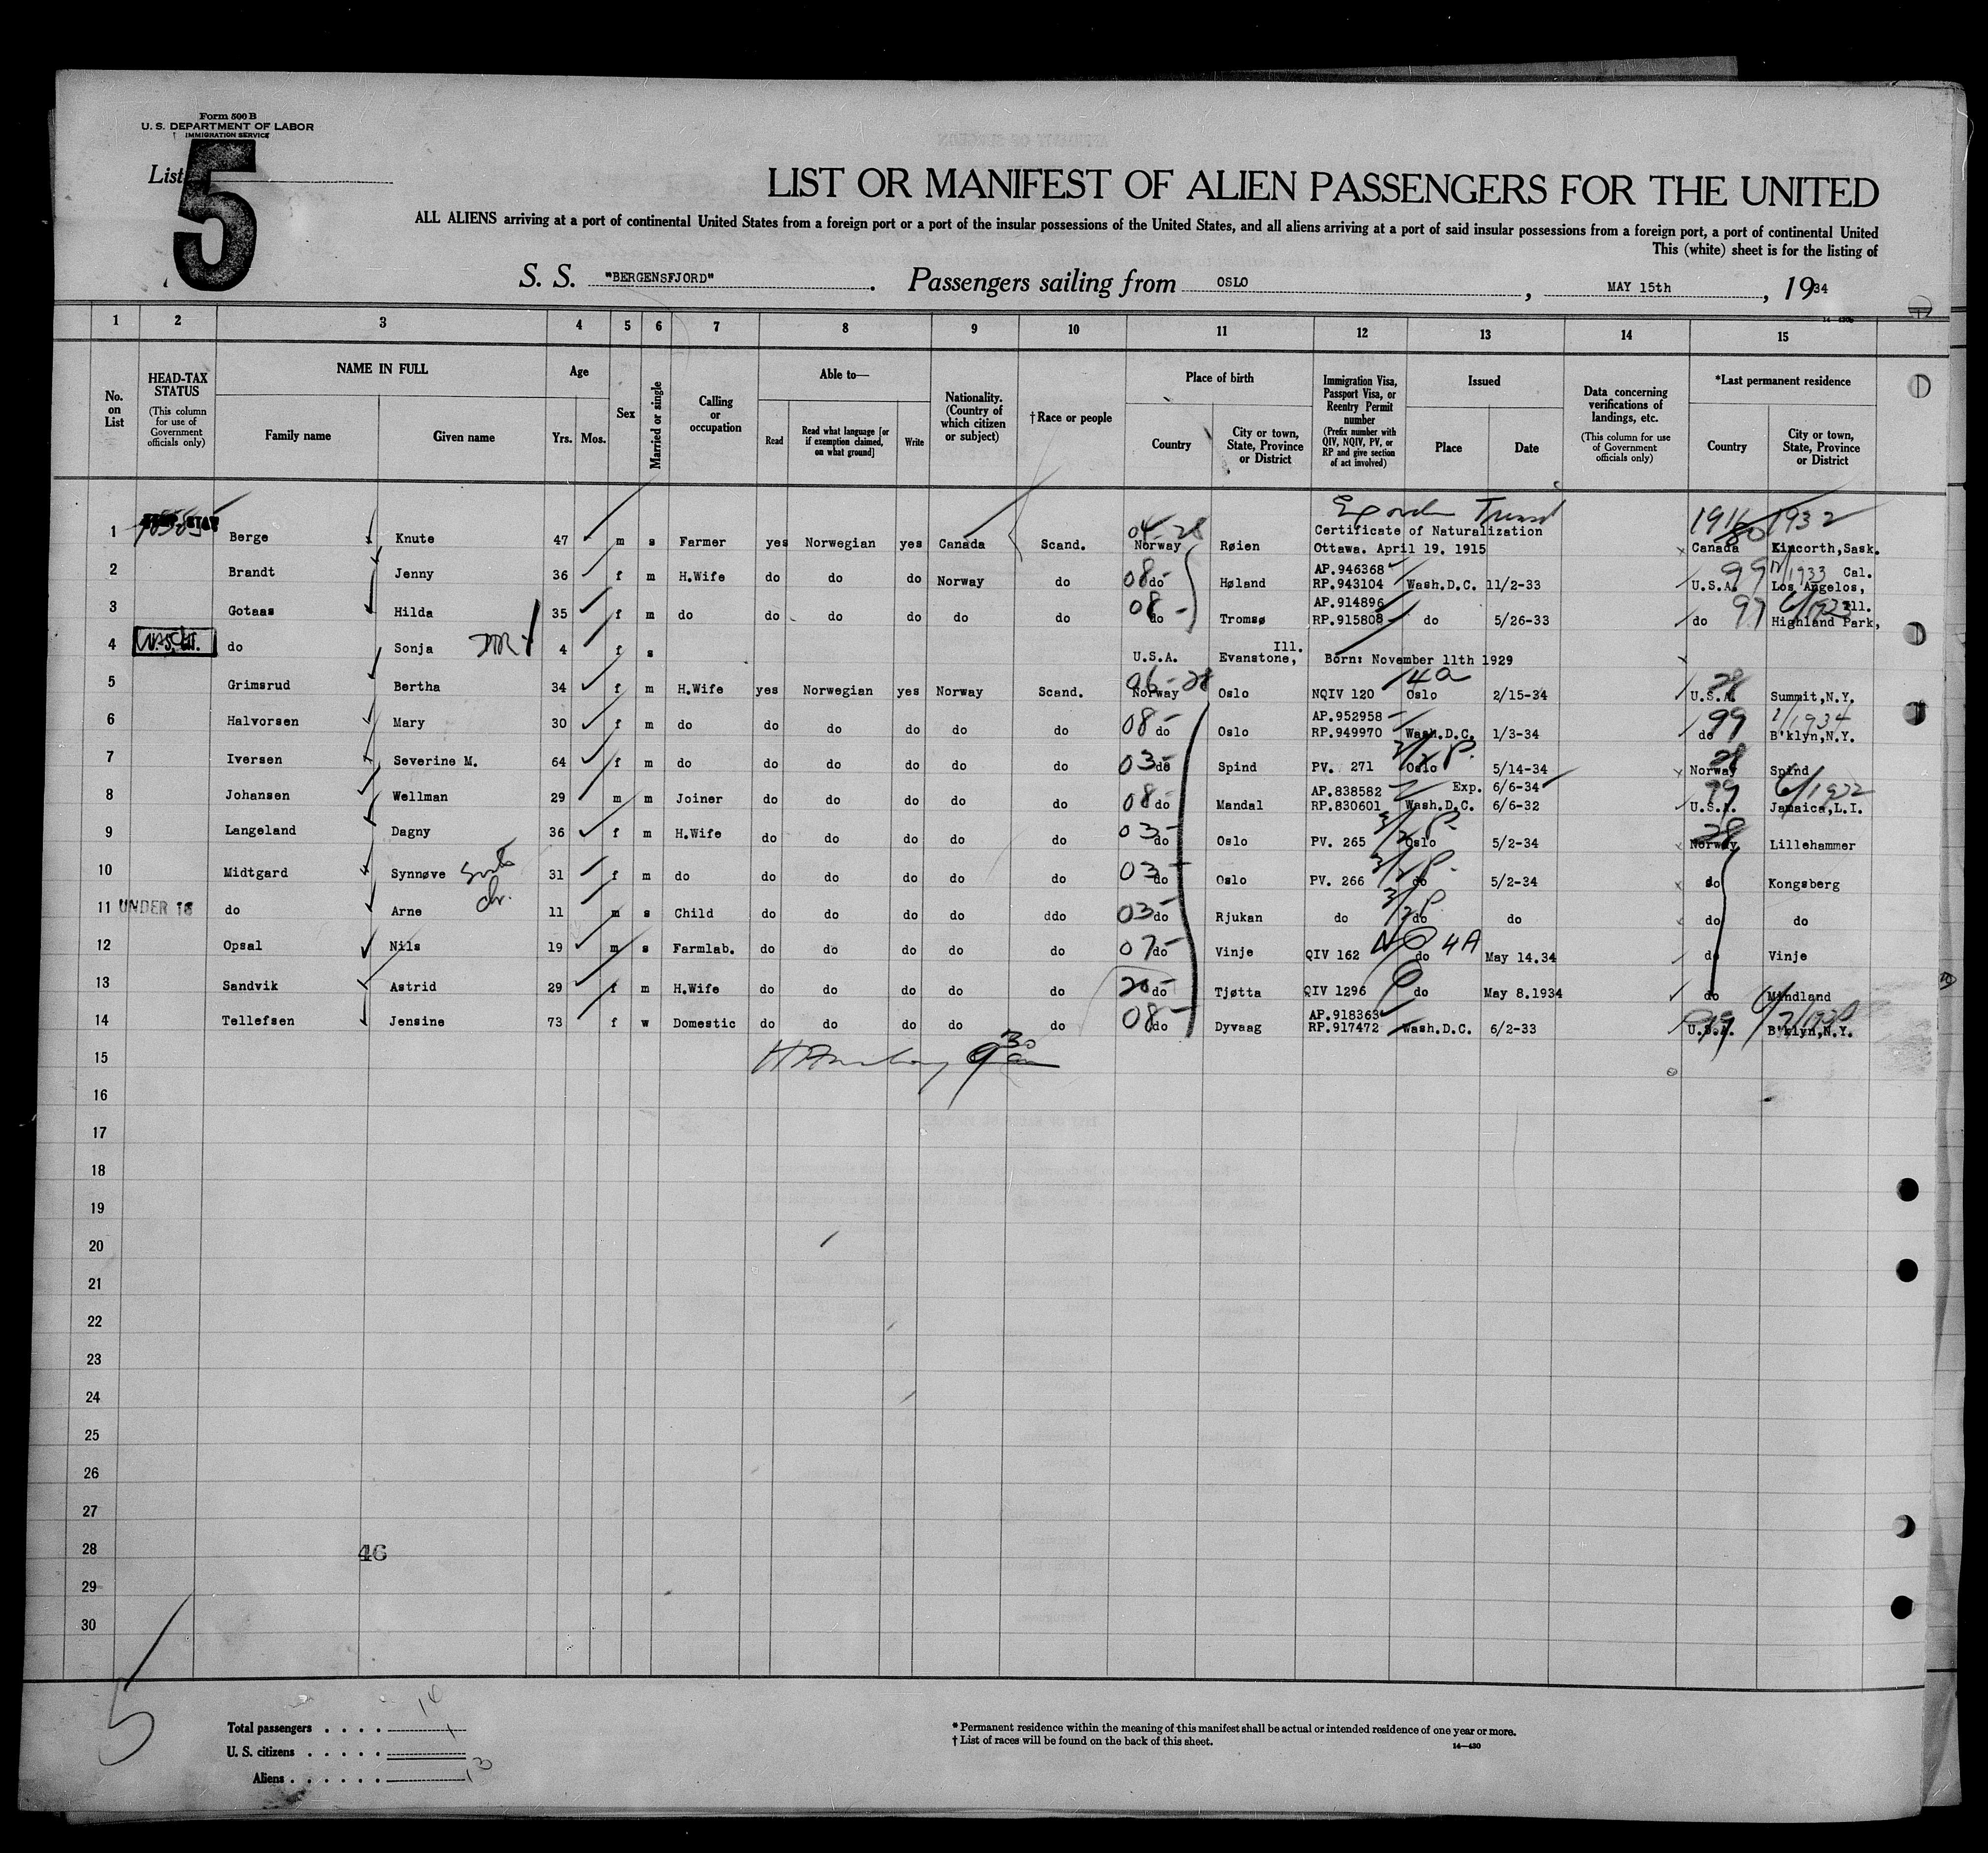 Form 500 B
U. S. DEPARTMENT OF LABOR
IMMIGRATION SERVICE
List 5
LIST OR MANIFEST OF ALIEN PASSENGERS FOR THE UNITED
ALL ALIENS arriving at a port of continental United States from a foreign port or a port of the insular possessions of the United States, and all aliens arriving at a port of said insular possessions from a foreign port, a port of continental United
This (white) sheet is for the listing of
S. S. "BERGENSFJORD". Passengers sailing from OSLO, MAY 15th, 1934
1 2 3 4 5 6 7 8 9 10 11 12 13 14 15
No. on List
HEAD-TAX STATUS
(This column for use of Government officials only)
NAME IN FULL
Family name Given name
Age
Yrs. Mos.
Sex
Married or single
Calling or occupation
Able to—
Read
Read what language [or if exemption claimed, on what ground]
Write
Nationality. (Country of which citizen or subject)
†Race or people
Place of birth
Country
City or town, State, Province or District
Immigration Visa, Passport Visa, or Reentry Permit number
(Prefix number with QIV, NQIV, PV, or RP and give section of act involved)
Issued
Place Date
Data concerning verifications of landings, etc.
(This column for use of Government officials only)
*Last permanent residence
Country
City or town, State, Province or District
1916 1932
04-28
1 Berge Knute 47 m s Farmer yes Norwegian yes Canada Scand. Norway Røien Certificate of Naturalization Ottawa. April 19. 1915 Canada Kincorth, Sask.
2 Brandt Jenny 36 f m H.Wife do do do Norway do 08- do Høland AP.946368 RP.943104 Wash.D.C. 11/2-33 U.S.A. 99 1933 Los Angelos, Cal.
3 Gotaas Hilda 35 f m do do do do do do 08- do Tromsø AP.914896 RP.915808 do 5/26-33 do 99 Highland Park, Ill.
4 do Sonja 4 f s U.S.A. Evanstone, Ill. Born: November 11th 1929
5 Grimsrud Bertha 34 f m H.Wife yes Norwegian yes Norway Scand. 06-28 Norway Oslo NQIV 120 4a Oslo 2/15-34 U.S.A. 28 Summit,N.Y.
6 Halvorsen Mary 30 f m do do do do do do 08- do Oslo AP.952958 RP.949970 Wash.D.C. 1/3-34 do 99 1/1934 B'klyn,N.Y.
7 Iversen Severine M. 64 f m do do do do do do 03- do Spind PV. 271 Oslo 5/14-34 Norway 28 Spind
8 Johansen Wellman 29 m m Joiner do do do do do 08- do Mandal AP.838582 RP.830601 Wash.D.C. Exp. 6/6-34 6/6-32 U.S.A. 99 6/1932 Jamaica,L.I.
9 Langeland Dagny 36 f m H.Wife do do do do do 03- do Oslo PV. 265 Oslo 5/2-34 Norway 28 Lillehammer
10 Midtgard Synnøve 31 f m do do do do do do 03- do Oslo PV. 266 do 5/2-34 do Kongsberg
11 UNDER 16 do Arne 11 m s Child do do do do ddo 03- do Rjukan do do do do do
12 Opsal Nils 19 m s Farmlab. do do do do do 07- do Vinje QIV 162 do 4A May 14.34 do Vinje
13 Sandvik Astrid 29 f m H.Wife do do do do do 20- do Tjøtta QIV 1296 do May 8.1934 do Mindland
14 Tellefsen Jensine 73 f w Domestic do do do do do 08- do Dyvaag AP.918363 RP.917472 Wash.D.C. 6/2-33 U.S.A. 99 B'klyn,N.Y.
15 9 30
16
17
18
19
20
21
22
23
24
25
26
27
28 46
29
30
5
Total passengers . . . . 14
U. S. citizens . . . . . 1
Aliens . . . . . . 13
* Permanent residence within the meaning of this manifest shall be actual or intended residence of one year or more.
† List of races will be found on the back of this sheet.
14—430